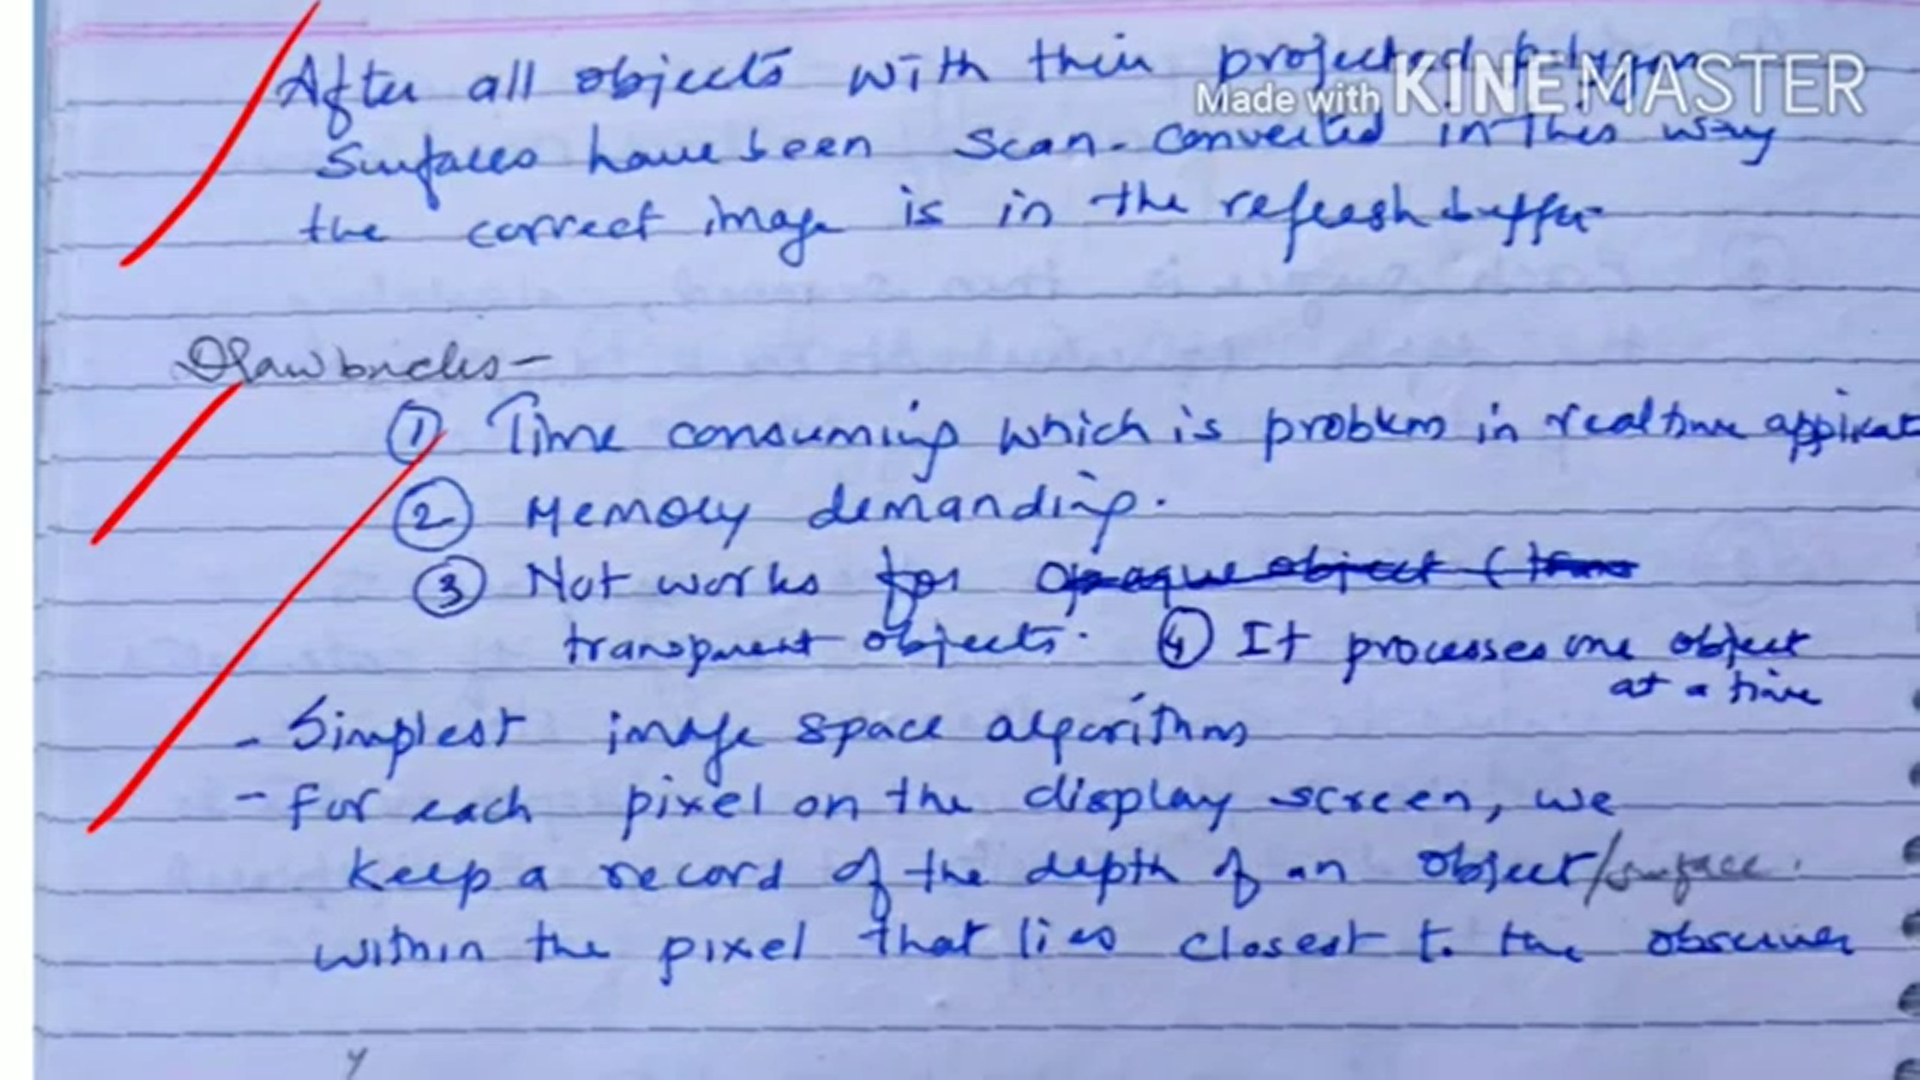 After all objects with their projected polygon
Made with KINEMASTER
Surfaces have been scan-converted in this way
the correct image is in the refresh buffer
Drawbacks-
① Time consuming which is problem in realtime applicat
② Memory demanding.
③ Not works for opaque object (trans
transparent objects. ④ It processes one object
at a time
- Simplest image space algorithm
- for each pixel on the display screen, we
keep a record of the depth of an object/surface.
within the pixel that lies closest to the observer
y